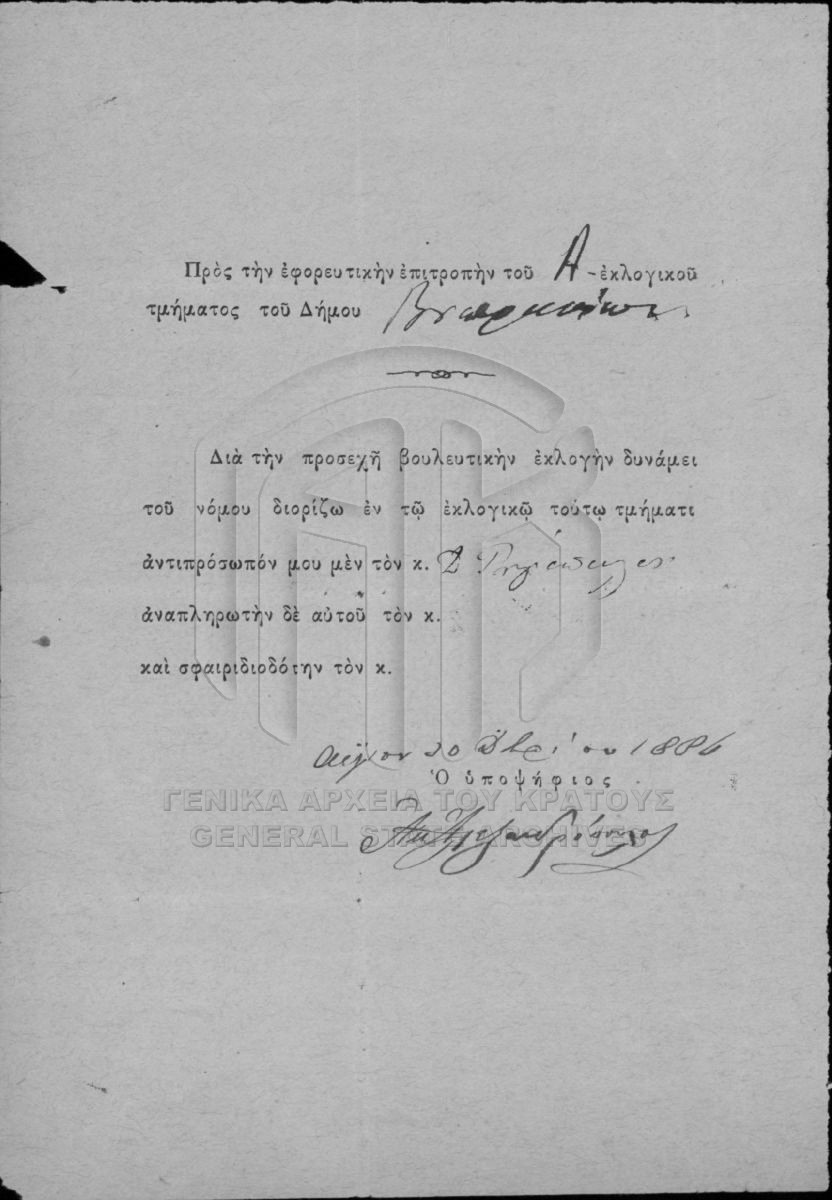 Πρὸς τὴν ἐφορευτικὴν ἐπιτροπὴν τοῦ Α - ἐκλογικοῦ
τμήματος τοῦ Δήμου
Διὰ τὴν προσεχῆ βουλευτικὴν ἐκλογὴν δυνάμει
τοῦ νόμου διορίζω ἐν τῷ ἐκλογικῷ τούτῳ τμήματι
ἀντιπρόσωπόν μου μὲν τὸν κ.
ἀναπληρωτὴν δὲ αὐτοῦ τὸν κ.
καὶ σφαιριδιοδότην τὸν κ.
1886
Ὁ ὑποψήφιος
ΓΕΝΙΚΑ ΑΡΧΕΙΑ ΤΟΥ ΚΡΑΤΟΥΣ
GENERAL STATE ARCHIVES